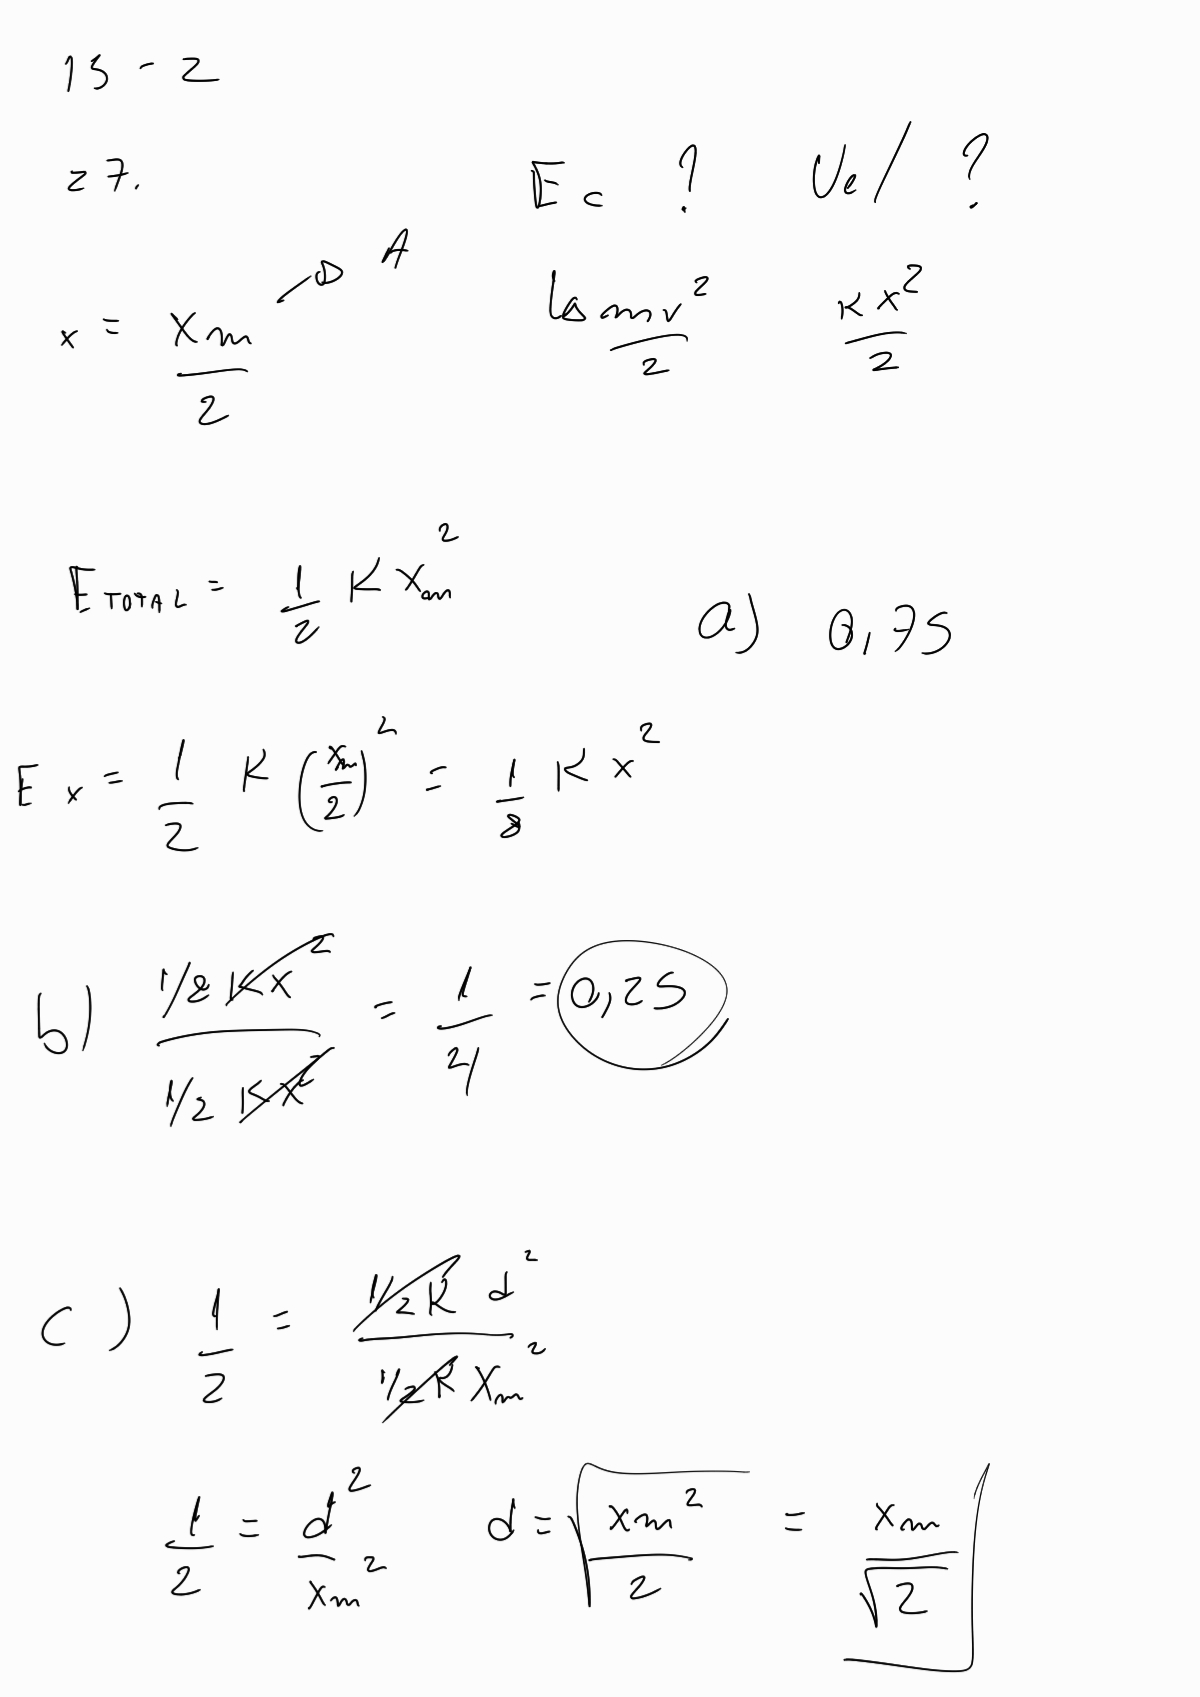 15 - 2
27.
Ec ? Ue/ ?
x = xm/2 → A
↳ mv²/2 kx²/2
E TOTAL = 1/2 K xm²
a) 0,75
E x = 1/2 K (xm/2)² = 1/8 K x²
b) 1/8 Kx² / 1/2 Kx² = 1/4 = 0,25
c) 1/2 = 1/2 K d² / 1/2 K Xm²
1/2 = d²/xm² d = √(xm²/2) = xm/√2